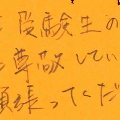 受験生の
尊敬してい
頑張ってくだ